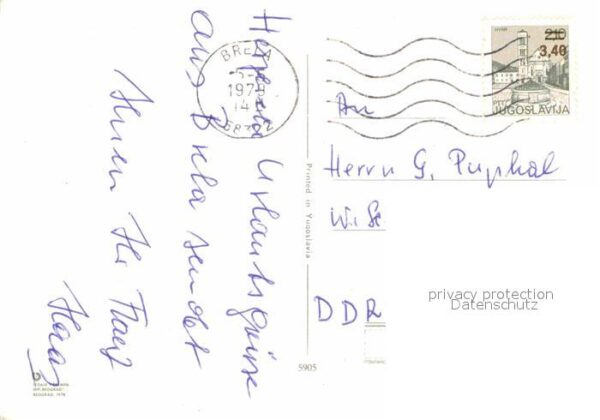 Herzliche Urlaubsgrüße
aus Brela sendet
Ihnen Ihr Franz
Haas
BRELA
1979
14
БРЕЛА
HVAR
2.10
3,40
JUGOSLAVIJA
An
Herrn G. Puphal
W. St
DDR
Printed in Yugoslavia
5905
privacy protection
Datenschutz